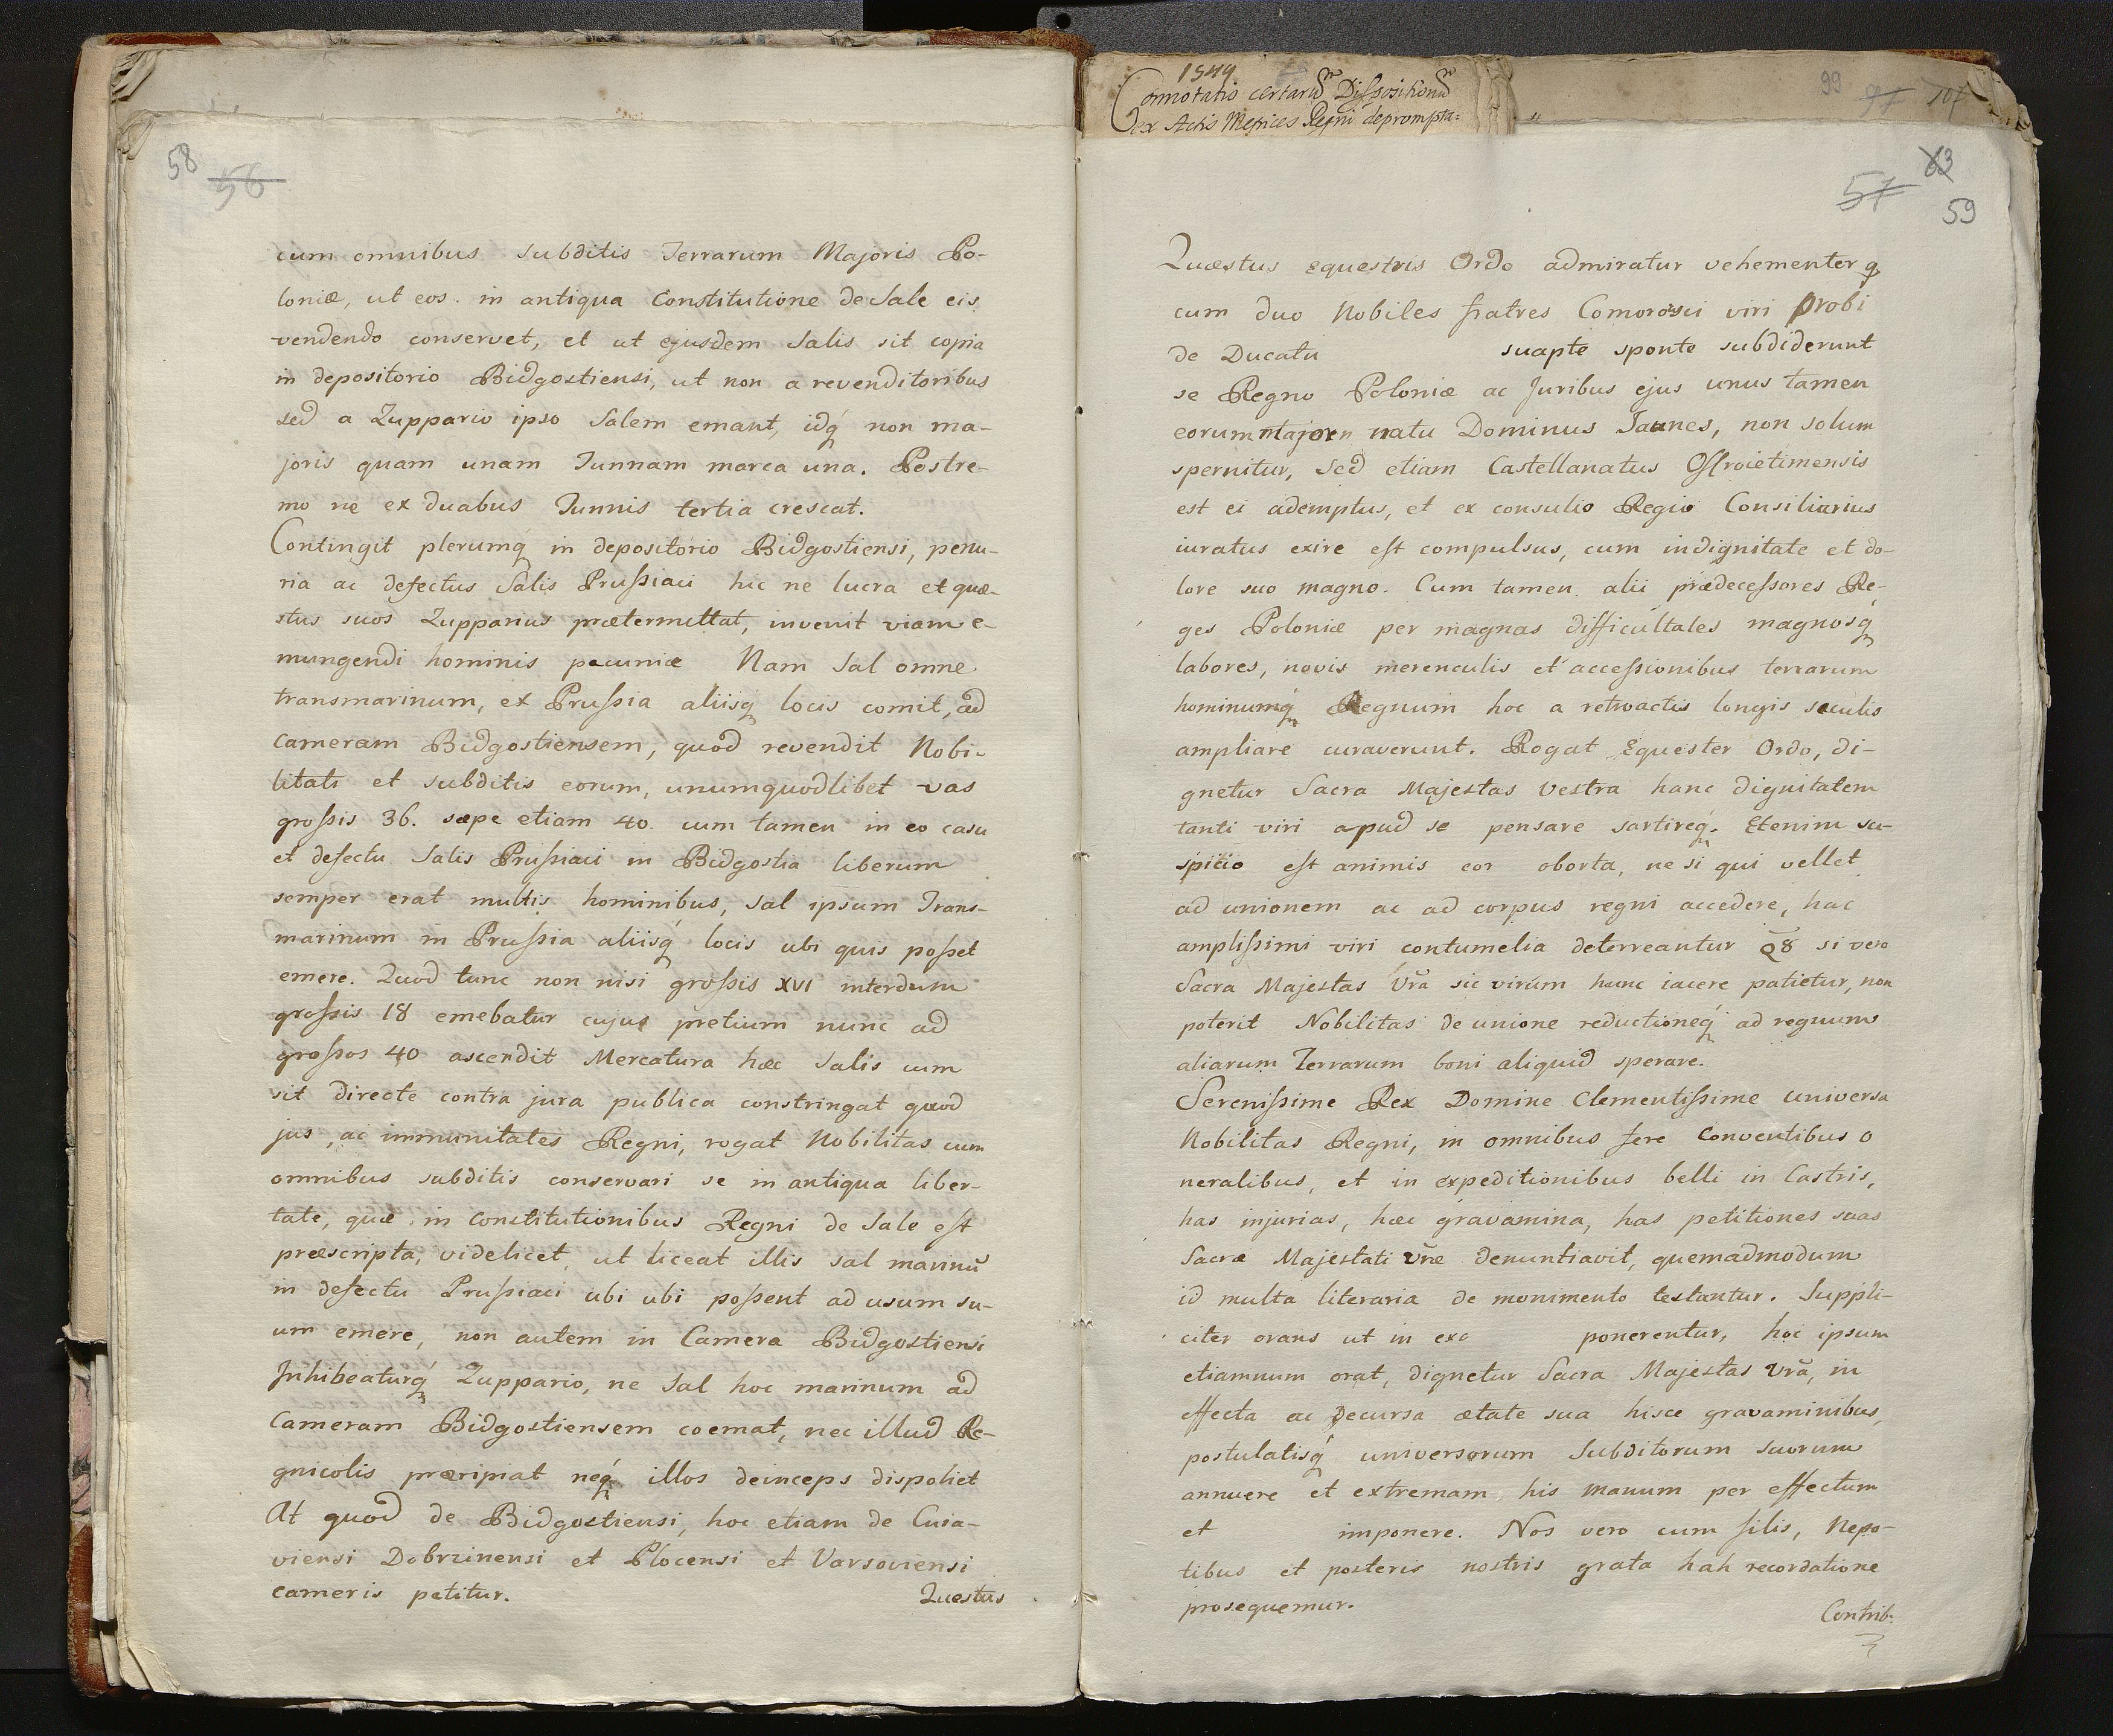 58 56
cum omnibus subditis Terrarum Majoris Po-
loniæ, ut eos. in antiqua Constitutione de Sale eis
vendendo conservet, et ut ejusdem Salis sit copia
in depositorio Bidgostiensi, ut non a revenditoribus
sed a Zuppario ipso Salem emant, idq́ non ma-
joris quam unam Tunnam marca una. Postre-
mo ne ex duabus Tunnis tertia crescat.
Contingit plerumq in depositorio Bidgostiensi, penu-
ria ac defectus Salis Prussiaci hic ne lucra et quæ-
stus suos Zupparius prætermittat, invenit viam e-
mungendi hominis pecuniæ Nam Sal omne
transmarinum, ex Prussia aliisq locis comit, ad
Cameram Bidgostiensem, quod revendit Nobi-
litati et subditis eorum, unumquodlibet vas
grossis 36. sæpe etiam 40. cum tamen in eo casu
et defectu Salis Prussiaci in Bidgostia liberum
semper erat multis hominibus, Sal ipsum Trans-
marinum in Prussia aliisq́ locis ubi quis posset
emere. Quod tunc non nisi grossis XVI interdum
grossis 18 emebatur cujus pretium nunc ad
grossos 40 ascendit Mercatura hæc Salis cum
sit directe contra jura publica constringat quod
jus, ac immunitates Regni, rogat Nobilitas cum
omnibus subditis conservari se in antiqua liber-
tate, quæ in Constitutionibus Regni de Sale est
præscripta, videlicet, ut liceat illis sal marinū
in defectu Prussiaci ubi ubi possent ad usum su-
um emere, non autem in Camera Bidgostiensi
Inhibeaturq́ Zuppario, ne Sal hoc marinum ad
Cameram Bidgostiensem coemat, nec illud Re-
gnicolis præripiat neq́ illos deinceps dispoliet
At quod de Bidgostiensi, hoc etiam de Cuia-
viensi Dobrzinensi et Plocensi et Varsoviensi
cameris petitur.
Questus
1549
Connotatio certarū Dispositionū
ex Actis Metrices Regni deprompta:
99 97 107
63
57
59
Quæstus Equestris Ordo admiratur vehementer q
cum duo Nobiles fratres Comorosci viri probi
de Ducatu suapte sponte subdiderunt
se Regno Poloniæ ac Juribus ejus unus tamen
eorum major natu Dominus Joannes, non solum
spernitur, sed etiam Castellanatus Osswietimensis
est ei ademptus, et ex consulio Regio Consiliarius
iuratus exire est compulsus, cum indignitate et do-
lore suo magno. Cum tamen alii prædecessores Re-
ges Poloniæ per magnas difficultates magnosq
labores, novis merenculis et accessionibus terrarum
hominumq́ Regnum hoc a retroactis longis seculis
ampliare curaverunt. Rogat Equester Ordo, di-
gnetur Sacra Majestas Vestra hanc dignitatem
tanti viri apud se pensare sartireq́. Etenim su-
spicio est animis eor oborta, ne si qui vellet
ad unionem ac ad corpus regni accedere, hac
amplissimi viri contumelia deterreantur Q8 si vero
Sacra Majestas Vrā sic virum hunc iacere patietur, non
poterit Nobilitas de unione reductioneq́ ad regnum
aliarum Terrarum boni aliquid sperare.
Serenissime Rex Domine Clementissime Universa
Nobilitas Regni, in omnibus fere Conventibus o
neralibus, et in expeditionibus belli in Castris,
has injurias, hæc gravamina, has petitiones suas
Sacræ Majestati Vr̃e denuntiavit, quemadmodum
id multa literaria de monimento testantur. Suppli-
citer orans ut in exc ponerentur, hoc ipsum
etiamnum orat, dignetur Sacra Majestas Vrā, in
effecta ac Decursa ætate sua hisce gravaminibus,
postulatisq́ universorum Subditorum suorum
annuere et extremam, his manum per effectum
et imponere. Nos vero cum filis, Nepo-
tibus et posteris nostris grata hah recordatione
prosequemur.
Contrib: